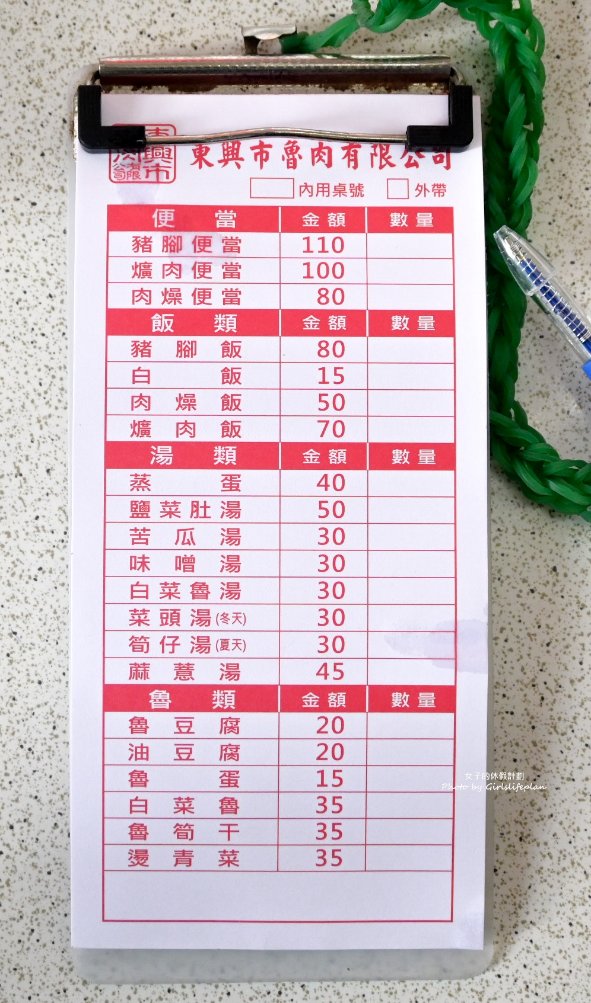 東興市魯肉有限公司
東興市
肉
有限公司
內用桌號 外帶
便當 金額 數量
豬腳便當 110
爌肉便當 100
肉燥便當 80
飯類 金額 數量
豬腳飯 80
白飯 15
肉燥飯 50
爌肉飯 70
湯類 金額 數量
蒸蛋 40
鹽菜肚湯 50
苦瓜湯 30
味噌湯 30
白菜魯湯 30
菜頭湯(冬天) 30
筍仔湯(夏天) 30
蔴薏湯 45
魯類 金額 數量
魯豆腐 20
油豆腐 20
魯蛋 15
白菜魯 35
魯筍干 35
燙青菜 35
女子的休假計劃
Photo by Girlslifeplan